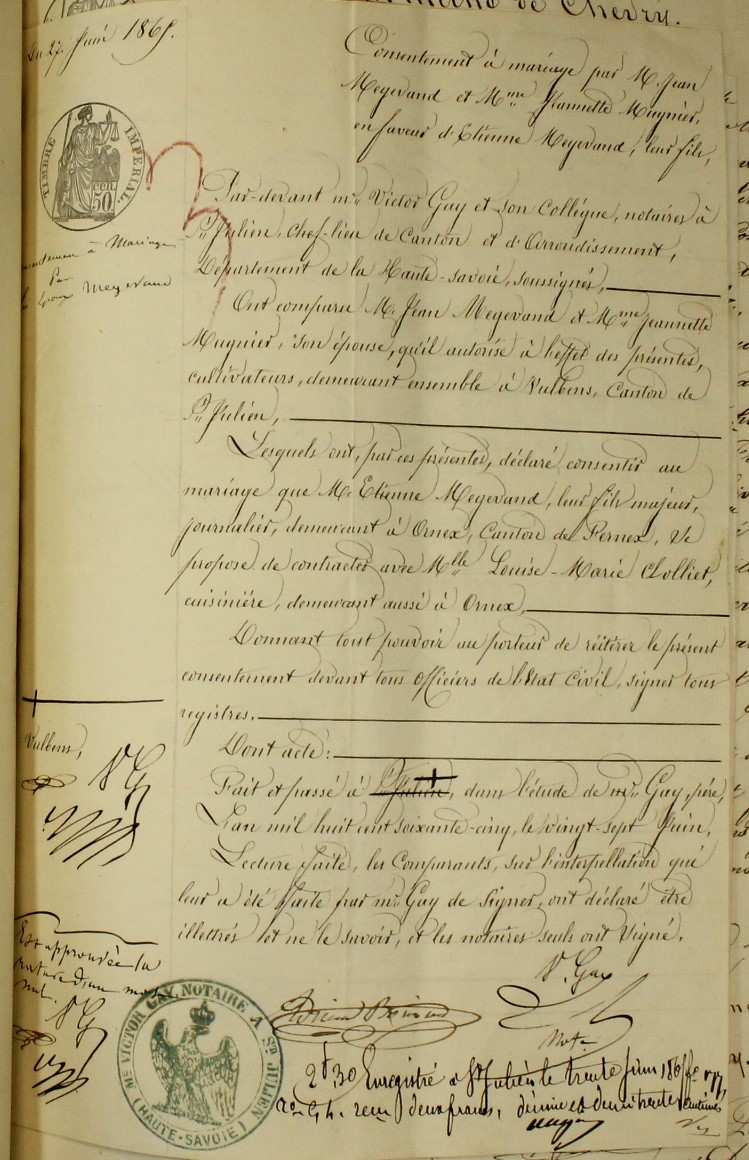 de Chevry.
Du 27. Juin 1865.
Consentement à mariage par M. Jean
Megevand et Mme Jeannette Mugnier,
en faveur d'Etienne Megevand, leur fils,
TIMBRE IMPERIAL
50
Par-devant me Victor Gay et son Collégue, notaires à
St Julien, chef-lieu de Canton et d'Arrondissement,
Département de la Haute-savoie, soussignés,
à Mariage
Par
Megevand
Ont comparu M. Jean Megevand et Mme Jeannette
Mugnier, son épouse, qu'il autorise à l'effet des présentes,
cultivateurs, demeurant ensemble à Vulbens, Canton de
St Julien,
Lesquels ont, par ces présentes, déclaré consentir au
mariage que M. Etienne Megevand, leur fils majeur,
journalier, demeurant à Ornex, Canton de Fernex, se
propose de contracter avec Mlle Louise-Marie Chollier,
cuisinière, demeurant aussi à Ornex,
Donnant tout pouvoir au porteur de réitérer le présent
consentement devant tous officiers de l'Etat Civil, signer tous
registres.
Dont acte:
Fait et passé à St Julien, dans l'étude de me Gay, père,
L'an mil huit cent soixante-cinq, le vingt-sept Juin,
Lecture faite, les Comparants, sur l'interpellation qui
leur a été faite par me Gay de Signer, ont déclaré être
illettrés et ne le savoir, et les notaires seuls ont Signé.
Vulbens,
V. Gay
Est approuvée la
rature d'un mot
nul.
V. Gay
Me VICTOR GAY, NOTAIRE A ST JULIEN
(HAUTE-SAVOIE)
Note
2f 30 Enregistré à St Julien le trente Juin 1865
reçu deux francs, décime et demi trente centimes